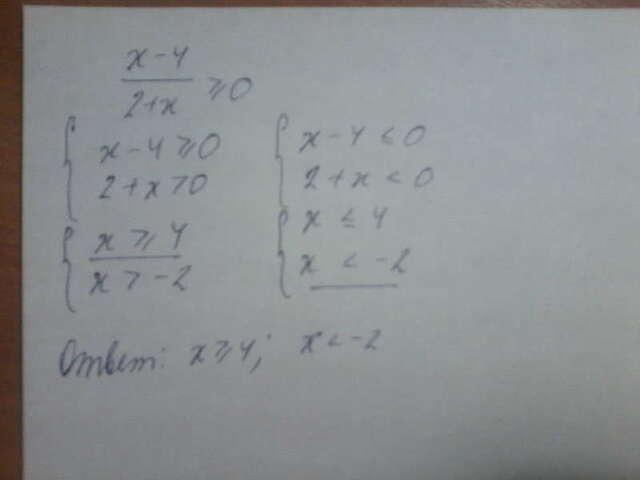 x-4
2+x ≥0
x-4≥0
2+x>0
x≥4
x>-2
x-4≤0
2+x<0
x≤4
x<-2
Ответ: x≥4; x<-2